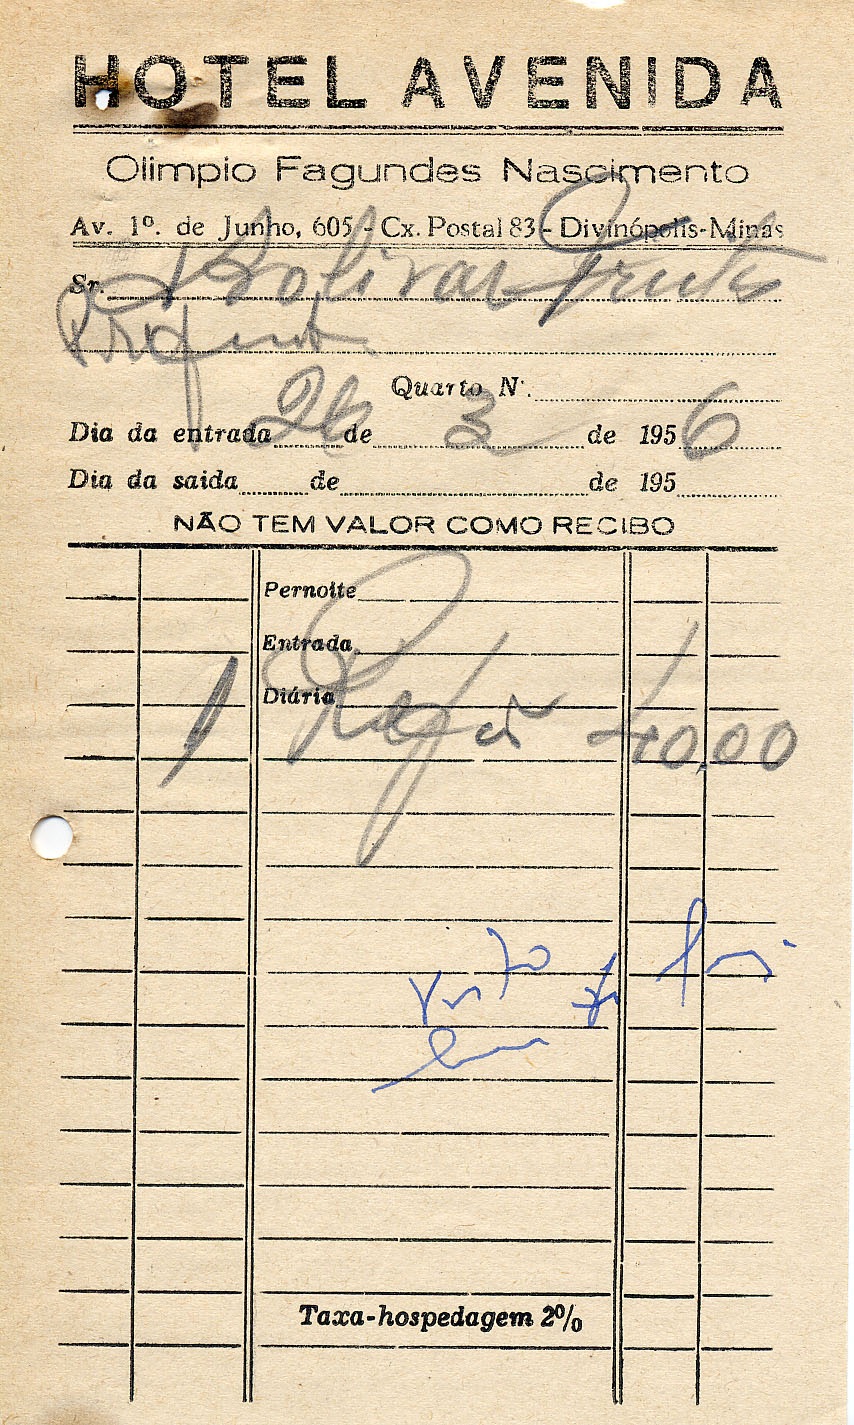 HOTEL AVENIDA
Olimpio Fagundes Nascimento
Av. 1º. de Junho, 605 - Cx. Postal 83 - Divinópolis-Minas
Sr. Bolivar
Quarto Nº.
Dia da entrada 26 de 3 de 1956
Dia da saida de de 195
NÃO TEM VALOR COMO RECIBO
Pernoite
Entrada
Diária
1 40,00
Taxa-hospedagem 2%